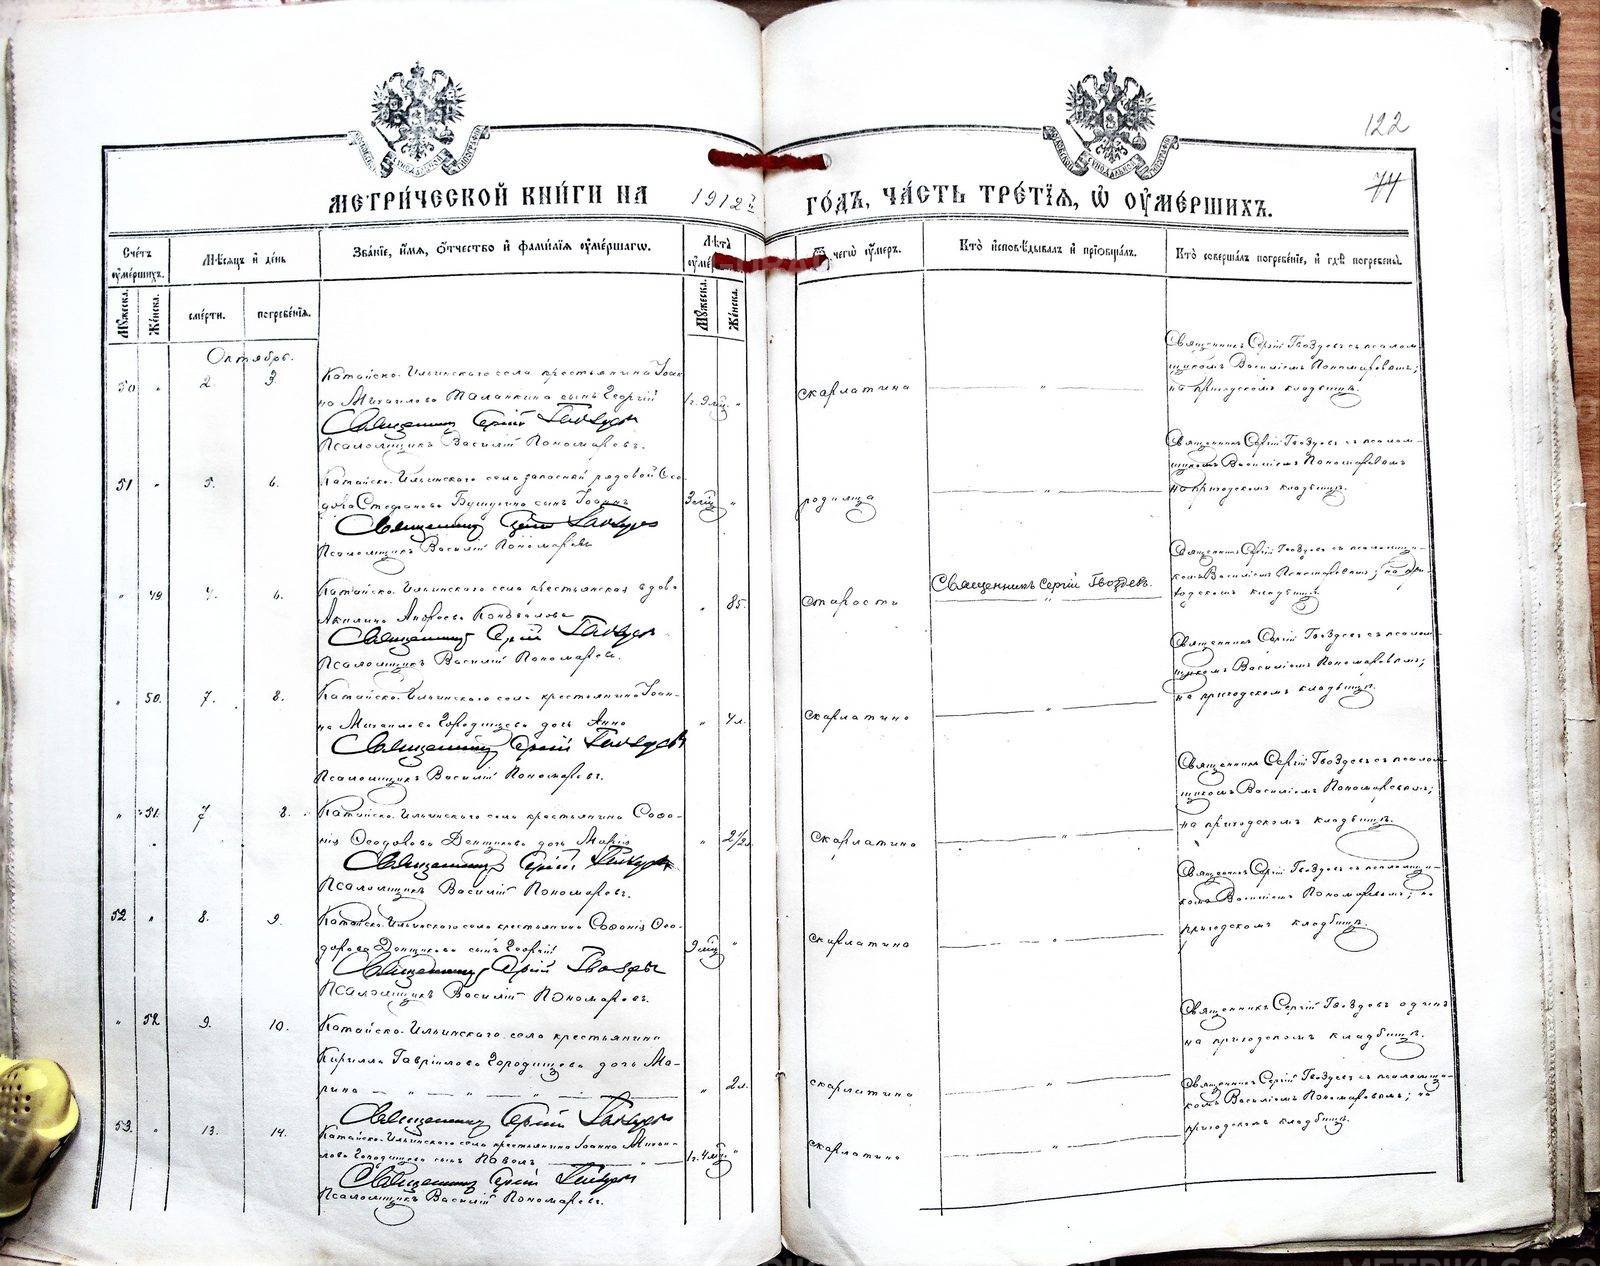 122
74
МЕТРИ́ЧЕСКОЙ КНИ́ГИ НА 1912й ГО́ДЪ, ЧА́СТЬ ТРЕ́ТІЯ, Ѡ҆ ОУ҆МЕ́РШИХЪ.
Сче́тъ оу҆ме́ршихъ.
Мѣ́сяцъ и҆ де́нь
Зва́ніе, и҆́мя, о҆́тчество и҆ фами́лія оу҆ме́ршагѡ.
Лѣ́тъ
чегѡ̀ оу҆́меръ.
Кто̀ и҆сповѣ́дывалъ и҆ пріобща́лъ.
Кто̀ соверша́лъ погребе́ніе, и҆ гдѣ̀ погребены̀.
Му́жеска.
Же́нска.
сме́рти.
погребе́нія.
Му́жеска.
Же́нска.
Октябрь.
50 " 2. 3.
Катайско-Ильинскаго села крестьянина Іоан-
на Михаилова Таланкина сынъ Георгій
Священникъ Сергій Гвоздевъ
Псаломщикъ Василій Пономаревъ.
1г. 9 мѣс. "
скарлатина
"
Священникъ Сергій Гвоздевъ съ псалом-
щикомъ Василіемъ Пономаревымъ;
на приходскомъ кладбищѣ.
51 " 5. 6.
Катайско-Ильинскаго села запасной рядовой Ѳео-
дора Стефанова сынъ Іоаннъ
Священникъ Сергій Гвоздевъ
Псаломщикъ Василій Пономаревъ
3 мѣс. "
родимца
"
Священникъ Сергій Гвоздевъ съ псалом-
щикомъ Василіемъ Пономаревымъ
на приходскомъ кладбищѣ.
" 49 4. 6.
Катайско-Ильинскаго села крестьянская вдова
Акилина Андреева Коновалова
Священникъ Сергій Гвоздевъ
Псаломщикъ Василій Пономаревъ.
" 85.
Старость
Священникъ Сергій Гвоздевъ.
"
Священникъ Сергій Гвоздевъ съ псаломщи-
комъ Василіемъ Пономаревымъ; на при-
ходскомъ кладбищѣ
" 50. 7. 8.
Катайско-Ильинскаго села крестьянина Іоан-
на Михаилова Городищева дочь Анна
Священникъ Сергій Гвоздевъ
Псаломщикъ Василій Пономаревъ.
" 4 л.
скарлатина
"
Священникъ Сергій Гвоздевъ съ псалом-
щикомъ Василіемъ Пономаревымъ;
на приходскомъ кладбищѣ.
" 51. 7 8.
Катайско-Ильинскаго села крестьянина Софо-
нія Ѳеодорова Денщикова дочь Марія
Священникъ Сергій Гвоздевъ
Псаломщикъ Василій Пономаревъ.
" 2½
скарлатина
"
Священникъ Сергій Гвоздевъ съ псалом-
щикомъ Василіемъ Пономаревымъ;
на приходскомъ кладбищѣ.
52 " 8. 9.
Катайско-Ильинскаго села крестьянина Софонія Ѳео-
дорова Денщикова сынъ Георгій
Священникъ Сергій Гвоздевъ
Псаломщикъ Василій Пономаревъ.
9 мѣс. "
скарлатина
"
Священникъ Сергій Гвоздевъ съ псаломщи-
комъ Василіемъ Пономаревымъ; на
приходскомъ кладбищѣ.
" 52 9. 10.
Катайско-Ильинскаго села крестьянина
Кирилла Гавріилова Городищева дочь Ма-
рина
Священникъ Сергій Гвоздевъ
" 2 л.
скарлатина
"
Священникъ Сергій Гвоздевъ одинъ
на приходскомъ кладбищѣ.
53. " 13. 14.
Катайско-Ильинскаго села крестьянина Іоанна Михаи-
лова Городищева сынъ Павелъ
Священникъ Сергій Гвоздевъ
Псаломщикъ Василій Пономаревъ.
1г. 4 мѣс. "
скарлатина
"
Священникъ Сергій Гвоздевъ съ псаломщи-
комъ Василіемъ Пономаревымъ; на
приходскомъ кладбищѣ.